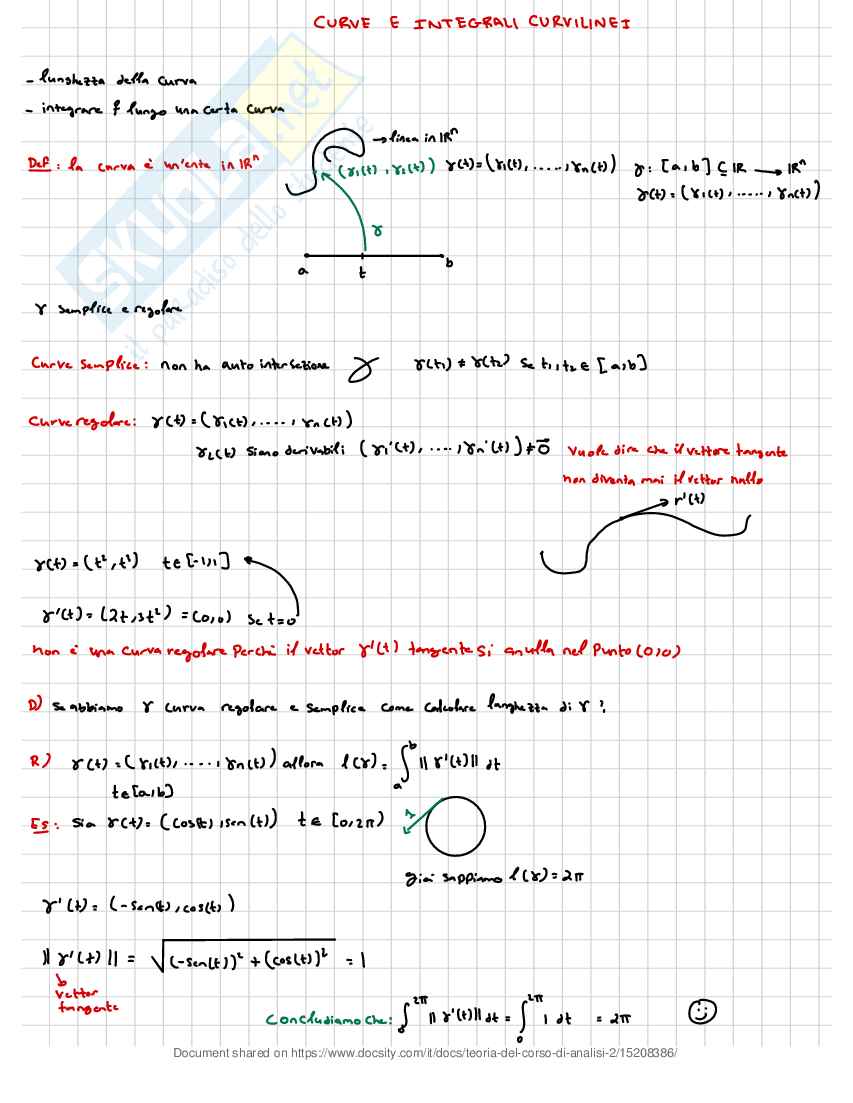 CURVE E INTEGRALI CURVILINEI
- lunghezza della curva
- integrare f lungo una certa curva
→ linea in IRⁿ
Def: la curva è un'ente in IRⁿ (γ1(t), γ2(t)) γ(t)=(γ1(t), ....., γn(t)) γ: [a,b] ⊆ IR → IRⁿ
γ(t) = (γ1(t), ......, γn(t))
γ
a t b
γ semplice e regolare
Curve Semplice: non ha auto intersezione γ(t1) ≠ γ(t2) se t1,t2 ∈ [a,b]
Curve regolare: γ(t) = (γ1(t), ...., γn(t))
γi(t) siano derivabili (γ1'(t), ...., γn'(t)) ≠ 0⃗ Vuole dire che il vettore tangente
non diventa mai il vettor nullo
r'(t)
γ(t) = (t², t³) t∈[-1,1]
γ'(t) = (2t, 3t²) = (0,0) se t=0
non è una curva regolare Perchè il vettor γ'(t) tangente si annulla nel Punto (0,0)
D) se abbiamo γ curva regolare e semplice come calcolare lunghezza di γ?
R) γ(t) = (γ1(t), ....., γn(t)) allora l(γ) = ∫ₐᵇ || γ'(t) || dt
t∈[a,b]
Es: Sia γ(t) = (cos(t), sen(t)) t ∈ [0,2π) 1
già sappiamo l(γ) = 2π
γ'(t) = (-sen(t), cos(t))
|| γ'(t) || = √(-sen(t))² + (cos(t))² = 1
vettor
tangente
Concludiamo che: ∫₀^2π || γ'(t) || dt = ∫₀^2π 1 dt = 2π
Document shared on https://www.docsity.com/it/docs/teoria-del-corso-di-analisi-2/15208386/
SKUOLA.net
il paradiso dello studente